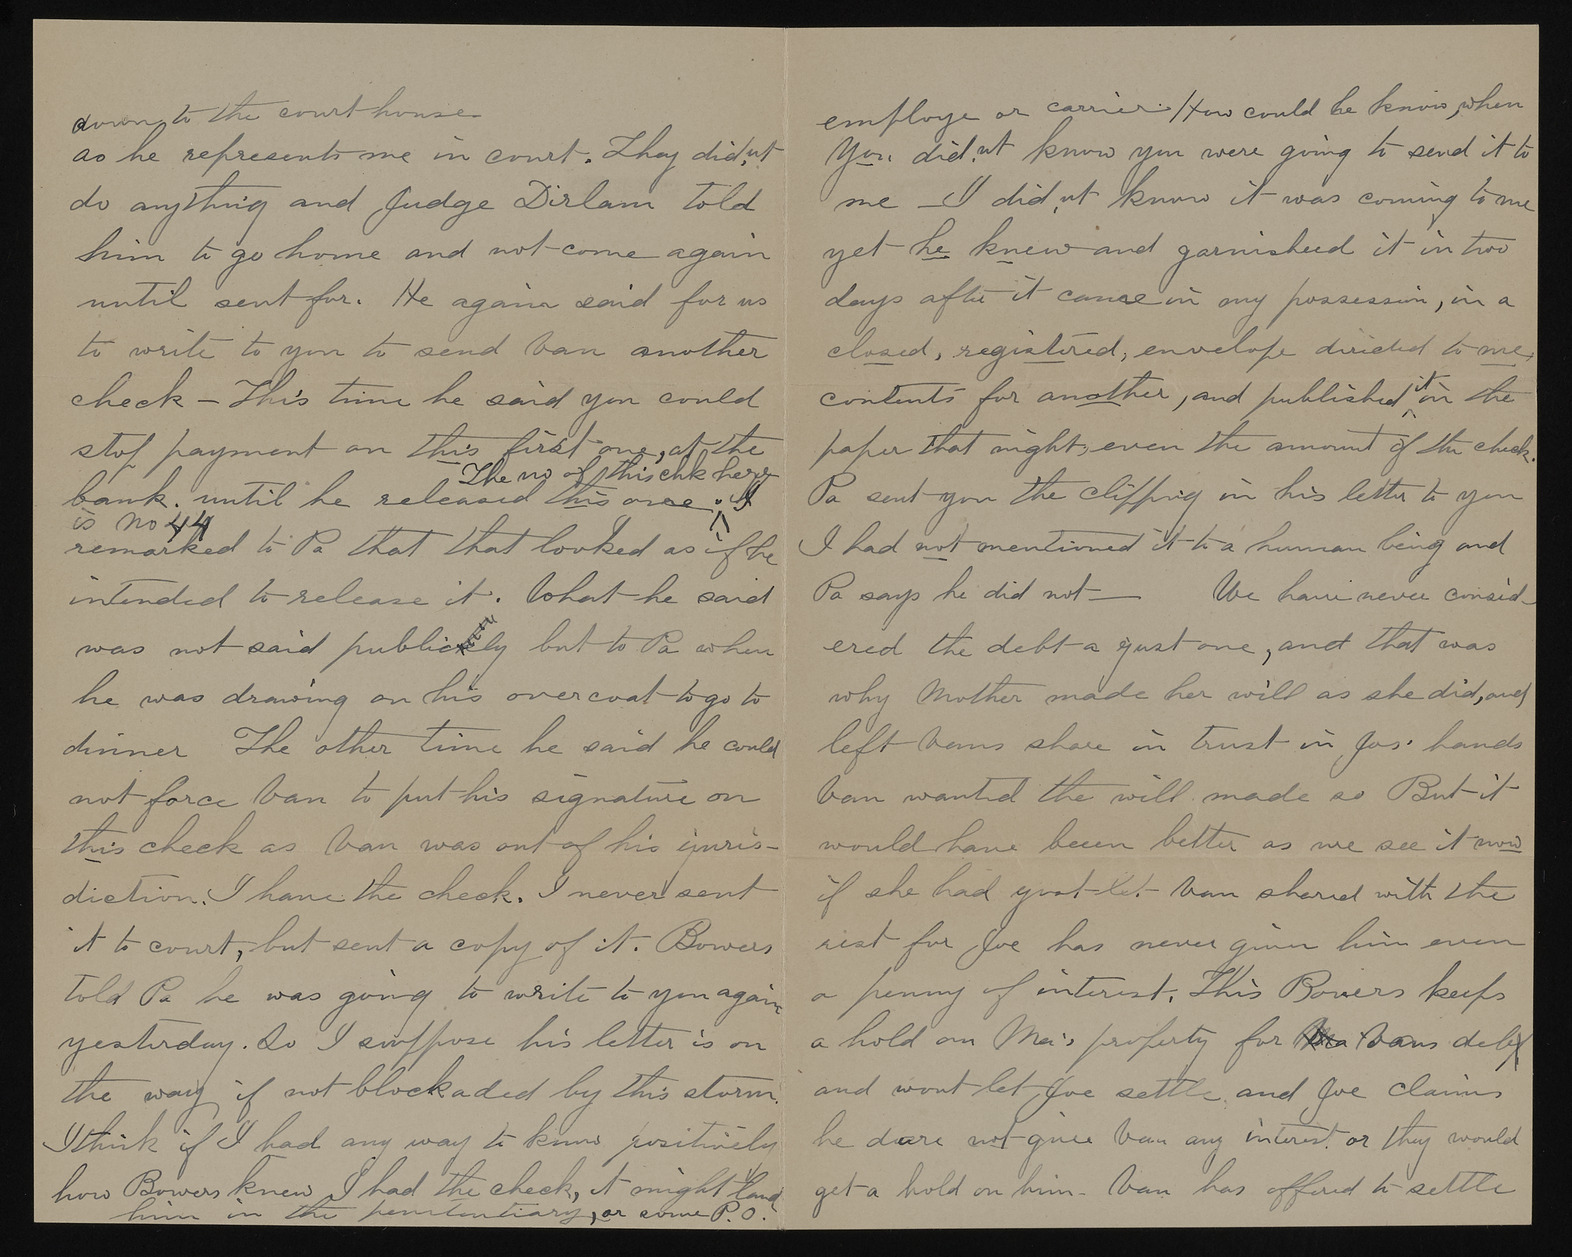 down to the court house
as he represents me in court. They did,nt
do anything and Judge Dirlam told
him to go home and not come again
until sent for. He again said for us
to write to you to send Van another
check – This time he said you could
stop payment on this first one, at the
The no of this chk here
bank. until he released this once. I
is No 44
remarked to Pa that that looked as if he
intended to release it. What he said
was not said publicly but to Pa when
he was drawing on his overcoat to go to
dinner The other time he said he could
not force Van to put his signature on
this check as Van was out of his juris-
diction. I have the check. I never sent
it to court, but sent a copy of it. Bowers
told Pa he was going to write to you again
yesterday. So I suppose his letter is on
the way if not blockaded by this storm.
I think if I had any way to know positively
how Bowers knew I had the check, it might land
him in the penitentiary, or some P.O.
employe or carrier. How could he know, when
You did,nt know you were going to send it to
me – I did,nt know it was coming to me
yet he knew and garnisheed it in two
days after it came in my possession, in a
closed, registered, envelope directed to me,
contents for another, and published it in the
paper that night, even the amount of the check.
Pa sent you the clipping in his letter to you
I had not mentioned it to a human being and
Pa says he did not — We have never consid-
ered the debt a just one, and that was
why Mother made her will as she did, and
left Vans share in trust in Jos' hands
Van wanted the will made so But it
would have been better as we see it now
if she had just let Van shared with the
rest for Joe has never given him even
a penny of interest. This Bowers keeps
a hold on Ma's property for Vans debt
and wont let Joe settle and Joe claims
he dare not give Van any interest or they would
get a hold on him - Van has offered to settle